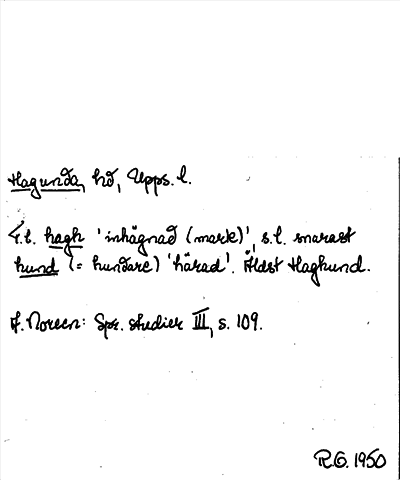 Hagunda, hd, Upps. l.
F.l. hagh 'inhägnad (mark)', s.l. snarast
hund (= hundare) 'härad'. Äldst Haghund.
A. Noreen: Spr. studier III, s. 109.
R.O. 1950